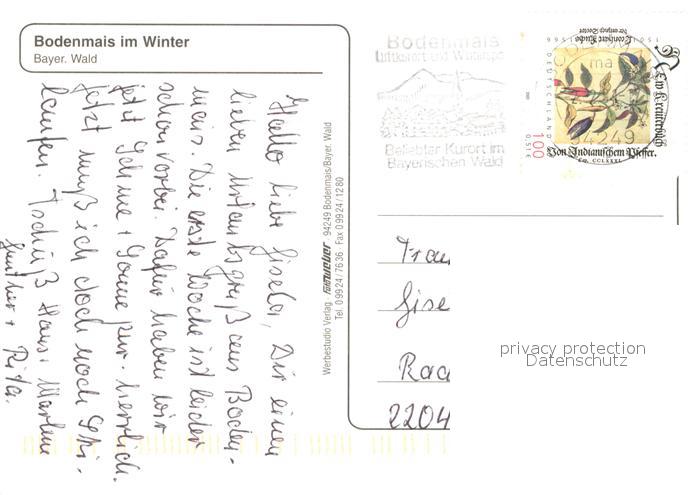 Bodenmais im Winter
Bayer. Wald
Hallo liebe Gisela, Dir einen
lieben Urlaubsgruß aus Boden-
mais. Die erste Woche ist leider
schon vorbei. Dafür haben wir
jetzt Schnee + Sonne pur. herrlich.
jetzt muß ich doch noch Ski-
laufen. Tschüß Hans + Marlene
Günther + Rita.
Werbestudio Verlag 94249 Bodenmais/Bayer. Wald
Tel. 0 99 24 / 76 36 Fax 0 99 24 / 12 80
Bodenmais
Luftkurort und
Beliebter Kurort im
Bayerischen Wald
94249
DEUTSCHLAND
100
0,51 €
Leonhart Fuchs
New Kreüterbuch
Von Indianischem Pfeffer.
CCLXXXI.
Frau
Gise
Rad
2204
privacy protection
Datenschutz